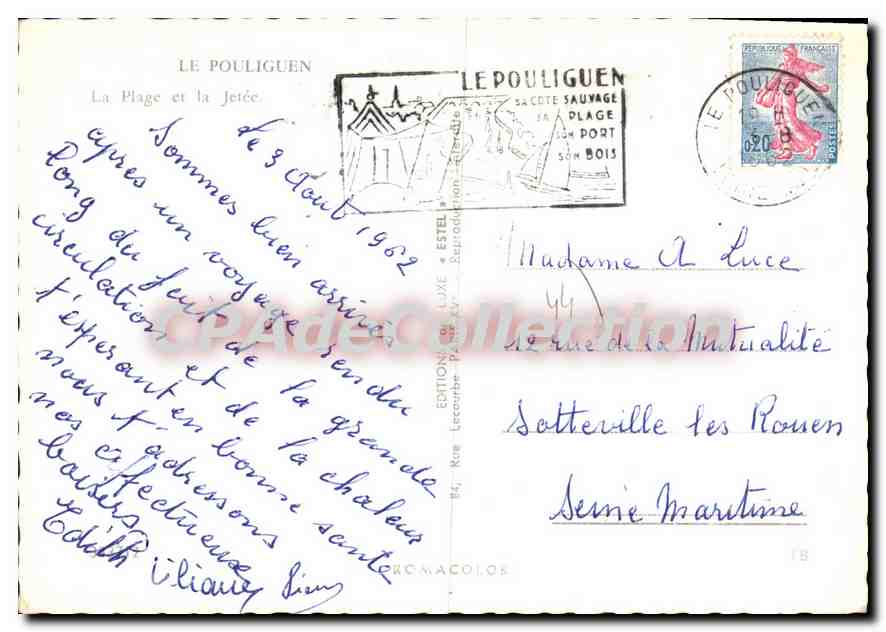 LE POULIGUEN
La Plage et la Jetée.
Le 3 Août 1962
Sommes bien arrivés
après un voyage rendu
long du fait de la grande
circulation et de la chaleur
t'esperant en bonne santé
nous t'adressons
nos affectueux
baisers
Edith Liliane
LE POULIGUEN
SA COTE SAUVAGE
SA PLAGE
SON PORT
SON BOIS
LE POULIGUEN
REPUBLIQUE FRANÇAISE
0,20
POSTES
EDITIONS DE LUXE « ESTEL »
84, Rue Lecourbe PARIS XVe Reproduction interdite
Madame A Luce
44
12 rue de la Mutualité
Sotteville les Rouen
Seine Maritime
ROMACOLOR
CPAdeCollection